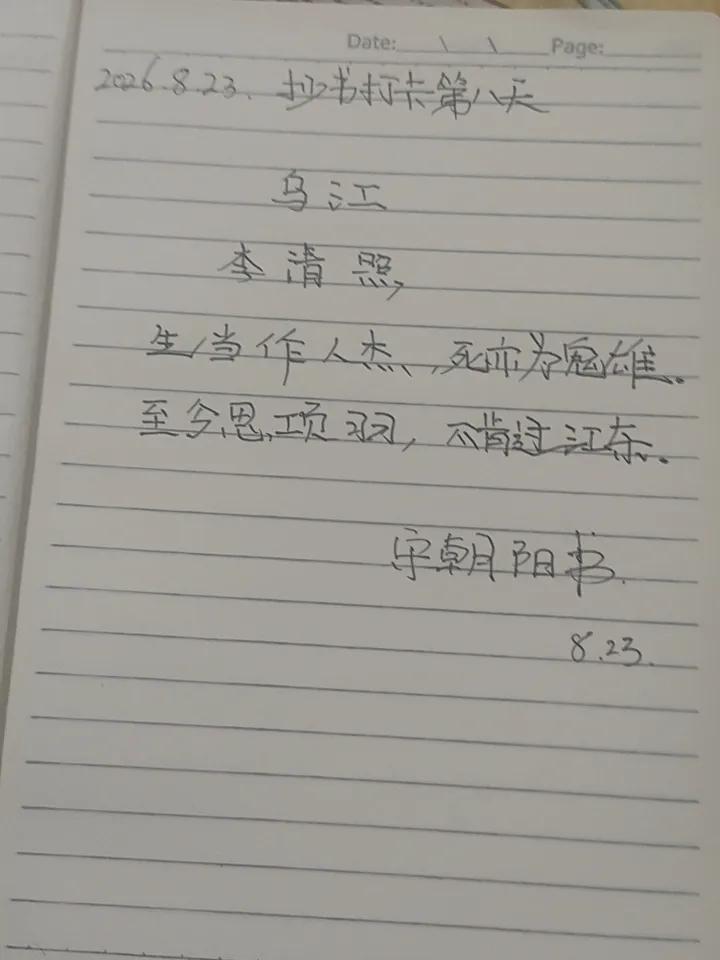 Date: \ \ Page:
2026.8.23. 抄书打卡第八天
乌江
李清照
生当作人杰,死亦为鬼雄.
至今思项羽,不肯过江东.
宋朝阳书.
8.23.